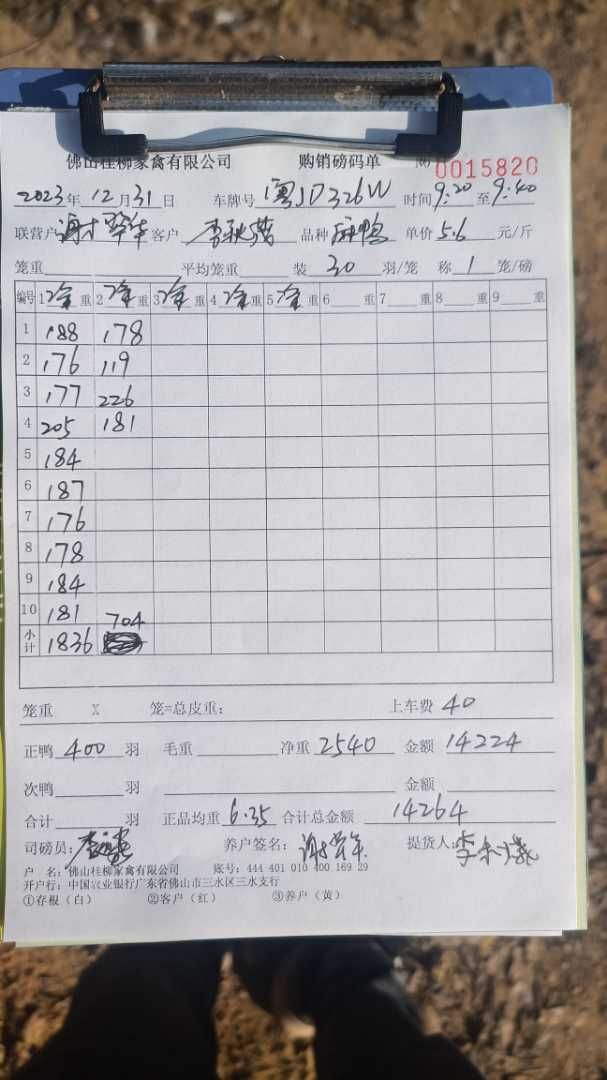 佛山桂柳家禽有限公司 购销磅码单 № 0015820
2023年12月31日 车牌号 粤JD326W 时间 9:20 至 9:40
联营户 谢 华 客户 李秋 品种 麻鸭 单价 5.6 元/斤
笼重 平均笼重 装 30 羽/笼 称 1 笼/磅
编号 1 净重 2 净重 3 净重 4 净重 5 净重 6 重 7 重 8 重 9 重
1 188 178
2 176 119
3 177 226
4 205 181
5 184
6 187
7 176
8 178
9 184
10 181
小计 1836 704
笼重 X 笼=总皮重: 上车费 40
正鸭 400 羽 毛重 净重 2540 金额 14224
次鸭 羽 金额
合计 羽 正品均重 6.35 合计总金额 14264
司磅员: 养户签名: 谢 华 提货人: 李
户 名: 佛山桂柳家禽有限公司 账号: 444 401 010 400 169 29
开户行: 中国农业银行广东省佛山市三水区三水支行
①存根(白) ②客户(红) ③养户(黄)